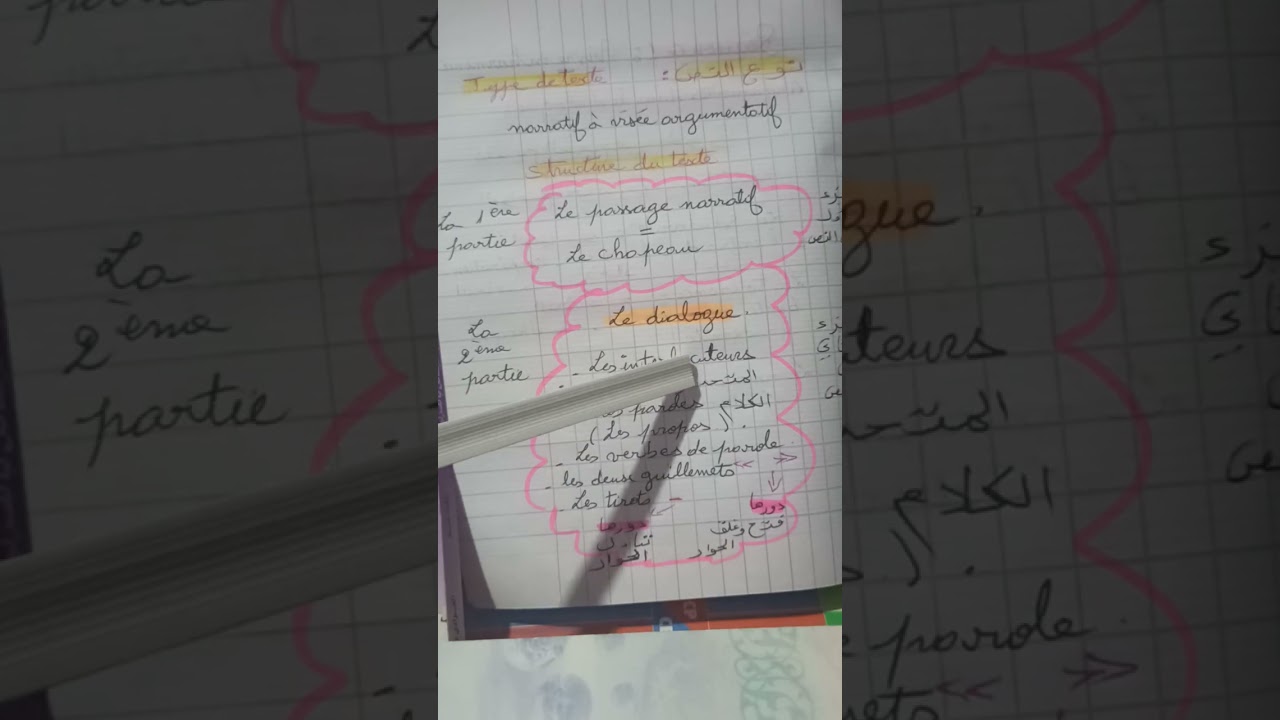 Type de texte نوع النص :
narratif à visée argumentatif
structure du texte
La 1ère partie
Le passage narratif
=
Le chapeau
La 2ème partie
Le dialogue.
- Les
المتحد
paroles الكلام
(Les propos)
- Les verbes de parole
- les deux guillemets << >>
- Les tirets -
دورها
فتح وغلق الحوار
دورها
تبادل الحوار